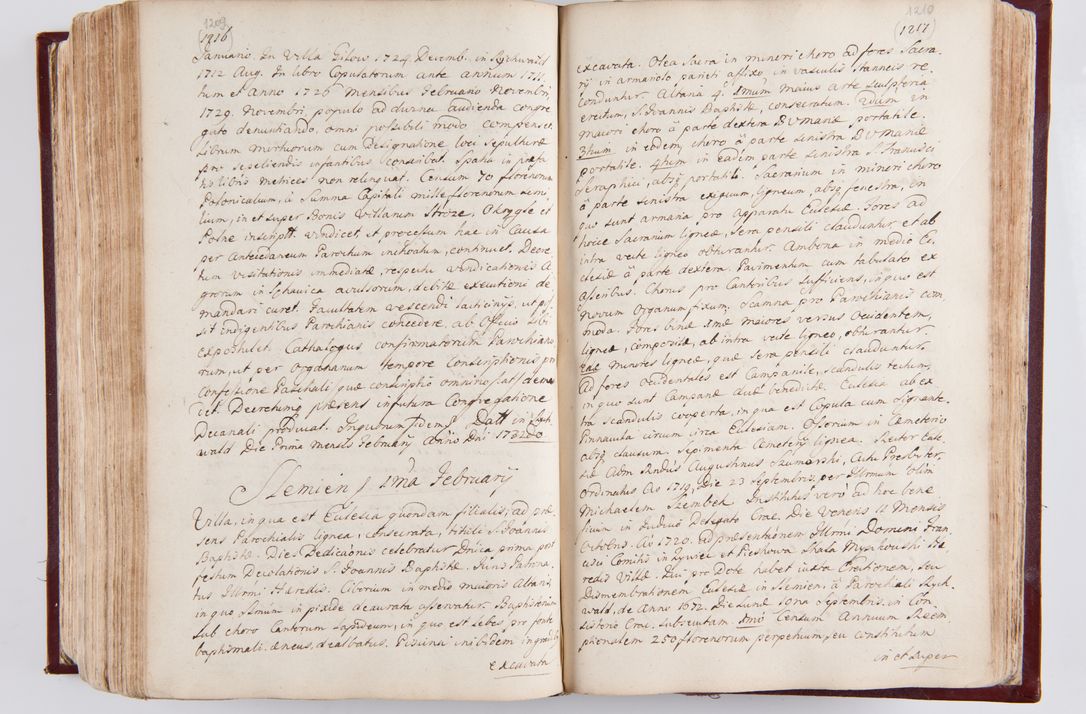 1209
(1216)
Januario. In Villa Gilow 1724 Decemb. in Rychwald
1712 Aug. In libro Copulatorum ante annum 1711
tum et Anno 1726 Mensibus Februario Novembri,
1729. Novembri, populo ad divina audienda congre
gato denuntiando, omni possibili modo, compenset.
Librum Mortuorum cum Designatione loci sepulturæ
pro sepeliendis infantibus conscribat. Spatia in præfa
tis libris Metrices non relinquat. Censum 70 florenorum
Polonicalium, a Summa Capitali mille florenorum simi
lium, in et super Bonis Villarum Stroze, Okrągłe et
Polne inscript. vindicet, et processum hac in Causa
per Antecedaneum Parochum inchoatum, continuet. Decre
tum visitationis immediatæ, respectu vindicationis A
grorum in avulsorum, debitæ executioni de
mandari curet. Facultatem vescendi lacticinijs, ut pos
sit Indigentibus Parochianis concedere, ab Officio sibi
expostulet. Cathalogus confirmatorum Parochiano
rum, ut per Organarium tempore Conscriptionis pro
Confessione Paschali quæ conscriptio omnino fiat
Decretumq præsens in futura Congregatione
Decanali producat. In quorum fidem Datt in Rych
wald Die Prima Mensis Februarij Anno Dni 1732do
Slemien 1ma Februarij
Villa, in qua est Ecclesia quondam filialis, ad præ
sens Parochialis lignea, consecrata, tituli S. Joannis
Baptistæ. Dies Dedicaonis celebratur Dnica prima post
festum Decolationis S. Joannis Baptistæ. Juris Patrona
tus Illrmi Hæredis. Ciborium in medio maioris Altaris,
in quo SSmum in pixide deaurata asservatur. Baptisterium
sub choro Cantorum lapideum, in quo est lebes pro fonte
baptismali æneus, dealbatus. Piscina inibidem in
excavata
1210
(1217)
excavata. Olea Sacra in minori choro ad fores Sacra
rij in armariolo parieti affixo, in vasculis stanneis re
conduntur. Altaria 4. Imum Maius arte sculptoria
erectum, S. Joannis Baptistæ, consecratum. 2dum in
maiori choro à parte dextera BVMariæ portatile.
3tium. in eodem choro à parte sinistra BVMariæ
portatile. 4tum in eadem parte sinistra S. Francisci
Seraphici, absq portatili. Sacrarium in minori choro
à parte sinistra exiguum, ligneum, absq fenestra, in
quo sunt armaria pro apparatu Ecclesiæ. Fores ad
hocce Sacrarium ligneæ, sera pensili clauduntur, et ab
intra vecte ligneo obturantur. Ambona in medio Ec
clesiæ à parte dextera. Pavimentum cum tabulato ex
Asseribus. Chorus pro Cantoribus sufficiens, in quo est
novum Organum fixum, scamna pro Parochianis com
moda. Fores binæ. Imæ maiores versus Occidentem,
ligneæ, compositæ, ab intra vecte ligneo, obturantur.
2dæ Minores ligneæ, quæ sera pensili clauduntur.
Ad fores Occidentales est Campanile, scandulis tectum,
in quo sunt Campanæ duæ benedictæ. Ecclesia ab ex
tra scandulis cooperta, in qua est Copula cum signante.
Pinnacula circum circa Ecclesiam. Ossorium in Cæmeterio
absq clausura. Sepimenta Cæmeterij lignea. Rector Eccle
siæ Adm Rndus Augustinus Szumowski, Actu Presbyter
Ordinatus Ao 1719, Die 23 Septembris per Illrmum olim
Michaelem Szembek Institutus verò ad hoc bene
ficium in Judicio Delegato Crac. Die Veneris 11 Mensis
Octobris. Ao 1720. ad præsentationem Illrmi Domini Fran
cisci Comitis in Żywiec et Pieskowa Skała Myszkowski Hæ
redis Villæ. Qui pro Dote habet iuxta Erectionem, seu
Dismembrationem Ecclesiæ in Slemien, à Parochiali Rych
wald, de Anno 1672. Die Lunæ 19na Septembris. in Con
sistorio Crac. subsecutam. Imò Censum Annuum
250 florenorum perpetuum, seu constitutum
in et super